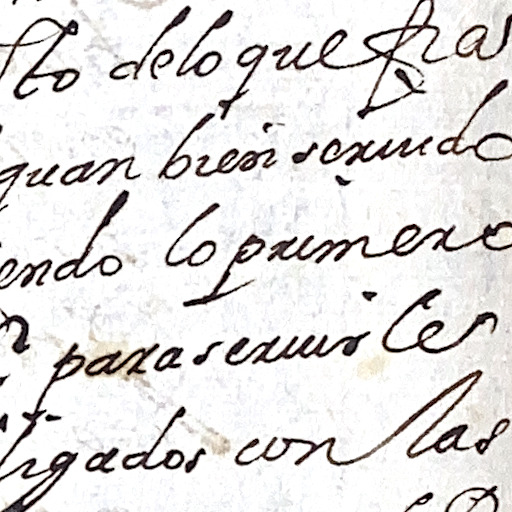 sto de lo que fras
quan bien seruido
endo lo primero
para seruir les
ligados con las